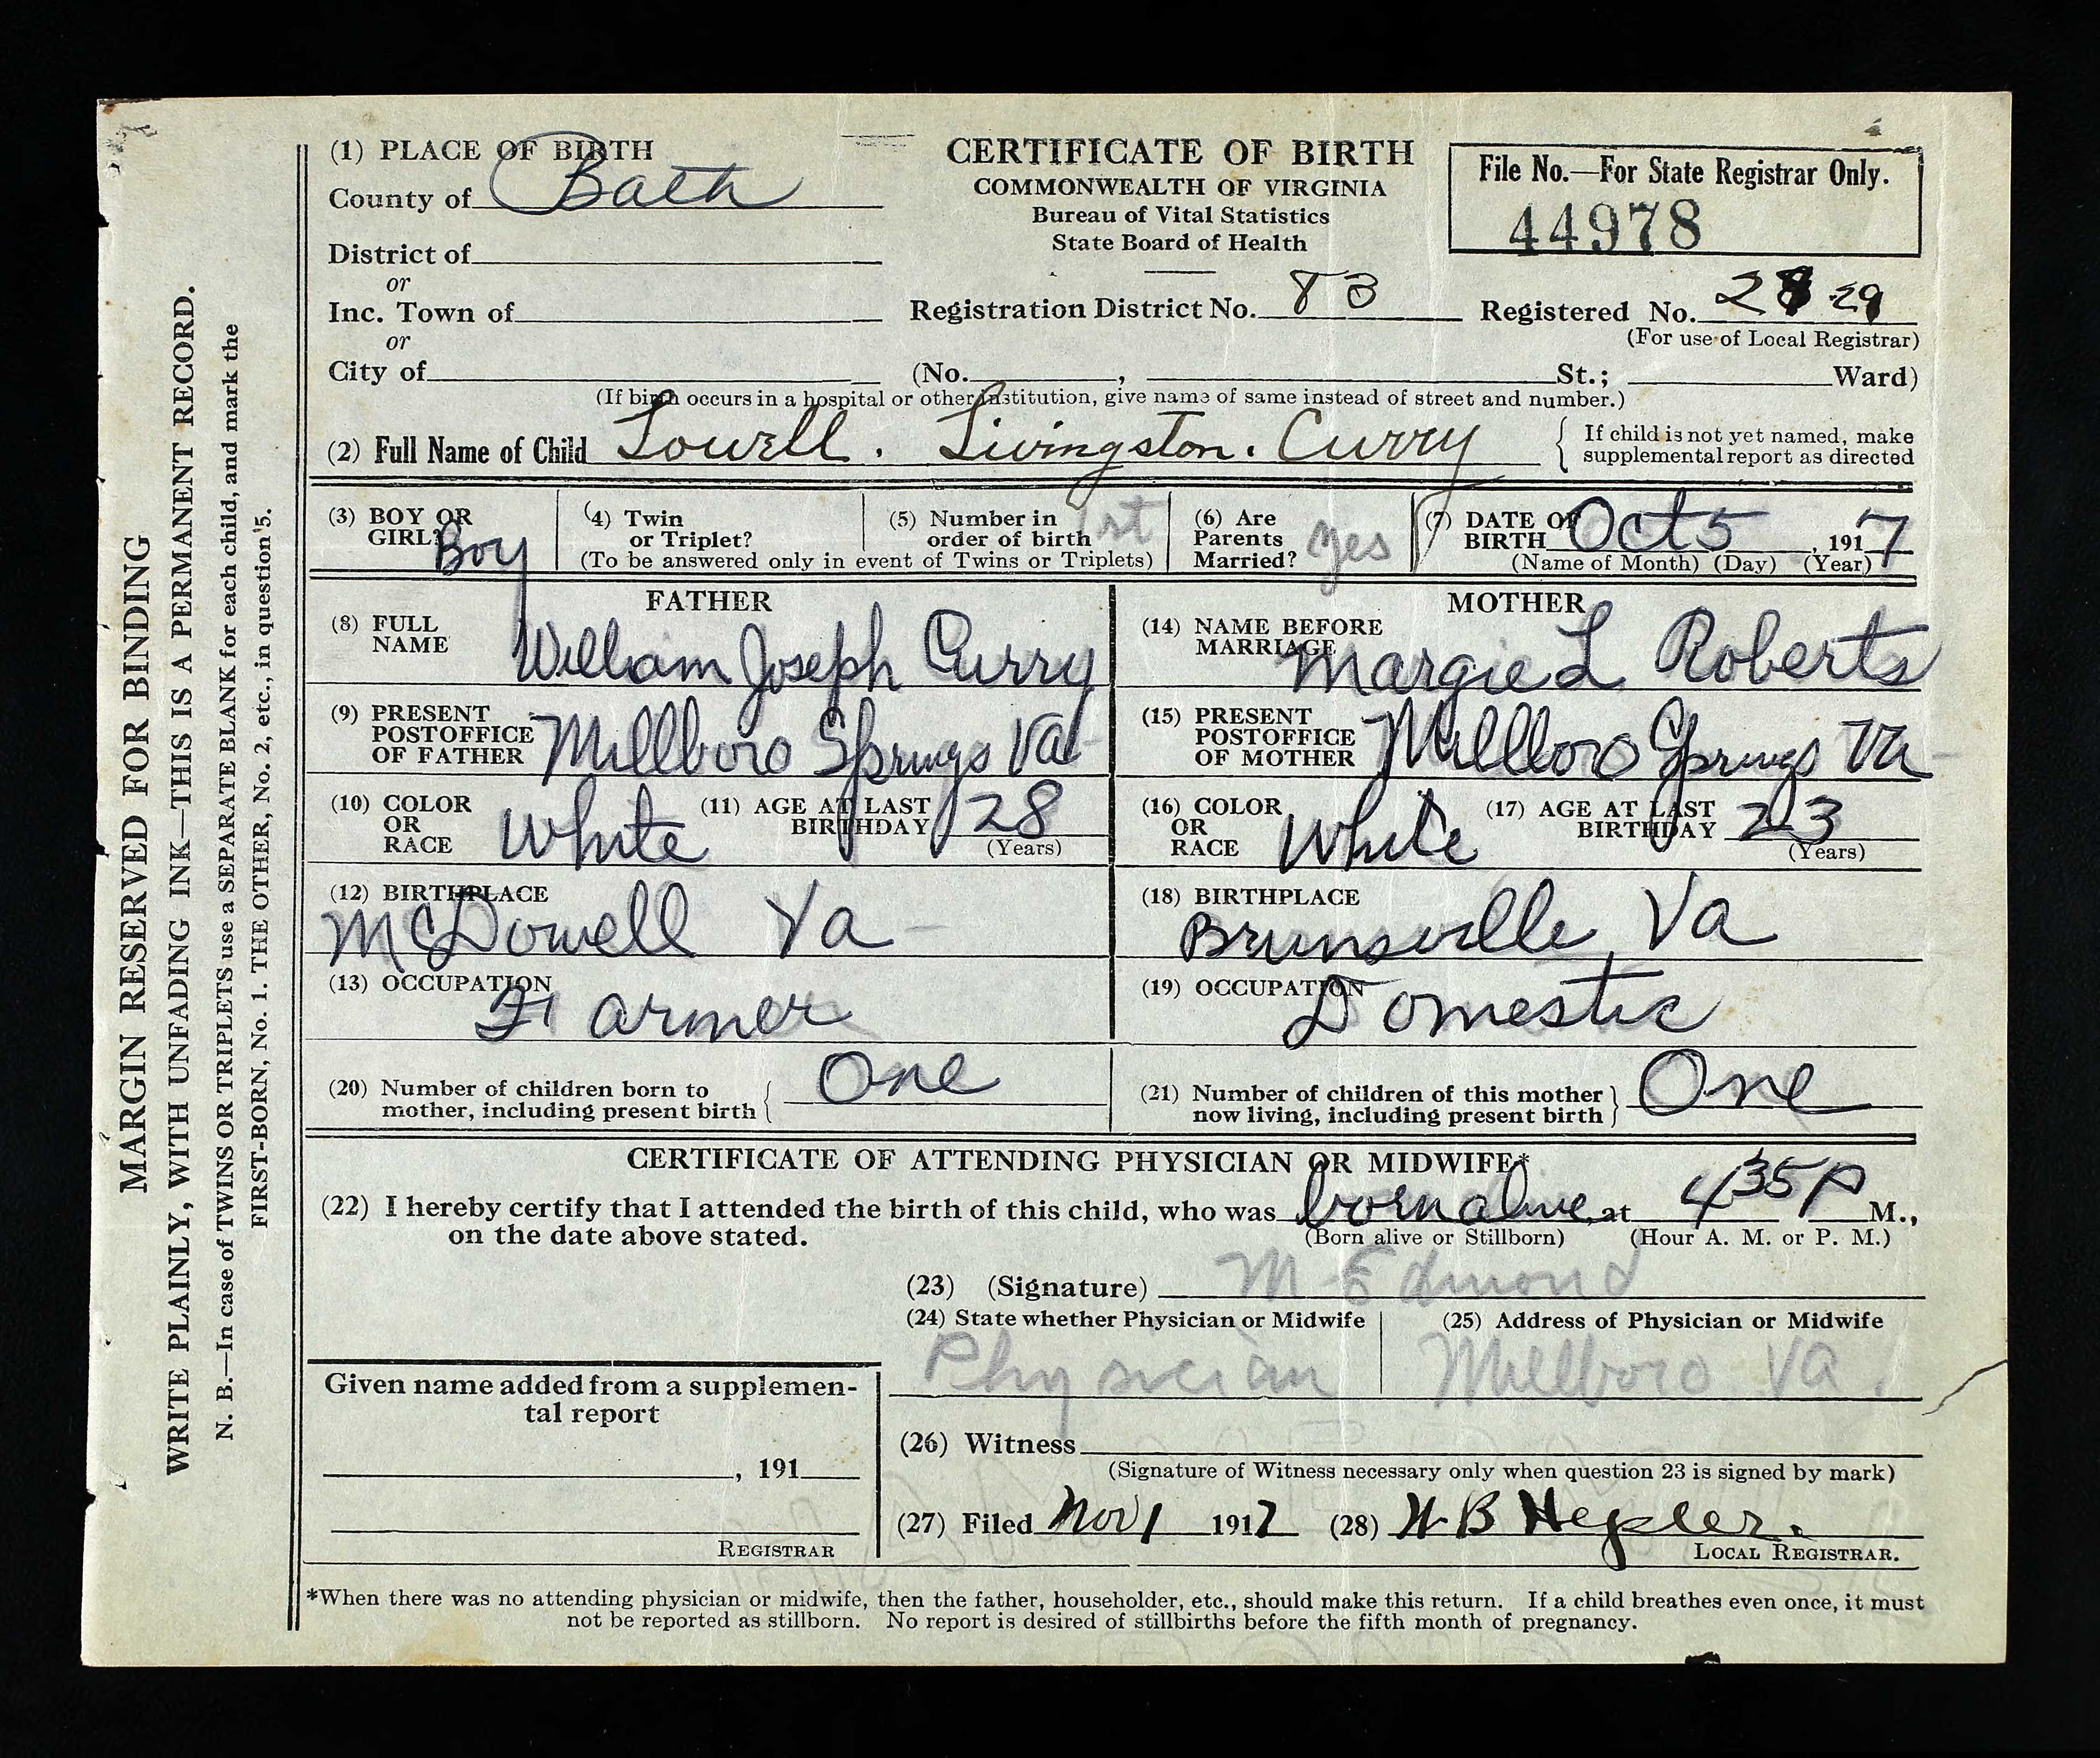 MARGIN RESERVED FOR BINDING
WRITE PLAINLY, WITH UNFADING INK—THIS IS A PERMANENT RECORD.
N. B.—In case of TWINS OR TRIPLETS use a SEPARATE BLANK for each child, and mark the
FIRST-BORN, No. 1. THE OTHER, No. 2, etc., in question 5.
(1) PLACE OF BIRTH
County of Bath
District of
or
Inc. Town of
or
City of
CERTIFICATE OF BIRTH
COMMONWEALTH OF VIRGINIA
Bureau of Vital Statistics
State Board of Health
File No.—For State Registrar Only.
44978
Registration District No. 83 Registered No. 28 29
(For use of Local Registrar)
(No. , St.; Ward)
(If birth occurs in a hospital or other institution, give name of same instead of street and number.)
(2) Full Name of Child Lowell. Livingston. Curry
If child is not yet named, make
supplemental report as directed
(3) BOY OR
GIRL? Boy
(4) Twin
or Triplet?
(5) Number in
order of birth 1st
(To be answered only in event of Twins or Triplets)
(6) Are
Parents
Married? yes
(7) DATE OF
BIRTH Oct 5, 1917
(Name of Month) (Day) (Year)
FATHER
(8) FULL
NAME William Joseph Curry
(9) PRESENT
POSTOFFICE
OF FATHER Millboro Springs Va
(10) COLOR
OR
RACE White
(11) AGE AT LAST
BIRTHDAY 28
(Years)
(12) BIRTHPLACE
McDowell Va
(13) OCCUPATION
Farmer
MOTHER
(14) NAME BEFORE
MARRIAGE Margie L Roberts
(15) PRESENT
POSTOFFICE
OF MOTHER Millboro Springs Va
(16) COLOR
OR
RACE White
(17) AGE AT LAST
BIRTHDAY 23
(Years)
(18) BIRTHPLACE
Brunsville Va
(19) OCCUPATION
Domestic
(20) Number of children born to
mother, including present birth One
(21) Number of children of this mother
now living, including present birth One
CERTIFICATE OF ATTENDING PHYSICIAN OR MIDWIFE*
(22) I hereby certify that I attended the birth of this child, who was born alive, at 4 35 P M.,
on the date above stated. (Born alive or Stillborn) (Hour A. M. or P. M.)
(23) (Signature) M Edmond
(24) State whether Physician or Midwife
Physician
(25) Address of Physician or Midwife
Millboro Va.
Given name added from a supplemen-
tal report
, 191
REGISTRAR
(26) Witness
(Signature of Witness necessary only when question 23 is signed by mark)
(27) Filed Nov 1 1917 (28) H B Hepler.
LOCAL REGISTRAR.
*When there was no attending physician or midwife, then the father, householder, etc., should make this return. If a child breathes even once, it must
not be reported as stillborn. No report is desired of stillbirths before the fifth month of pregnancy.